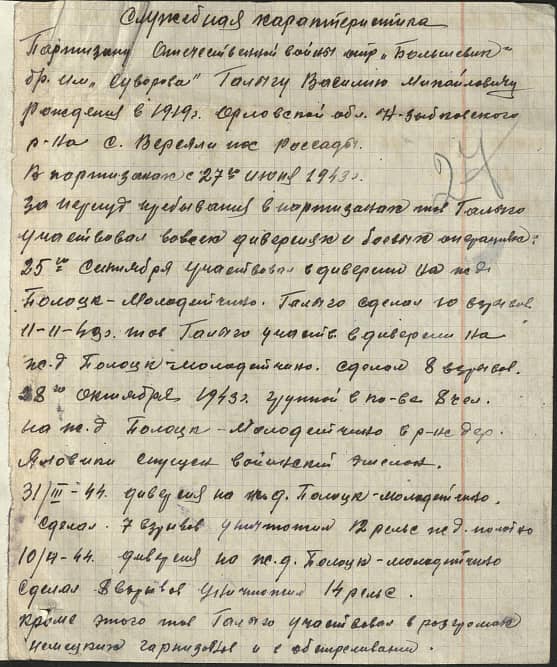 Служебная характеристика
Партизану Отечественной войны отр „Большевик“
бр. им „Суворова“ Талыгу Василию Михайловичу
Рождения в 1919г. Орловской обл. Н-Зыбковского
р-на с. Верещаки пос Рассады.
В партизанах с 27го июня 1943г.
24
За период пребывания в партизанах тов Талыго
участвовал во всех диверсиях и боевых операциях:
25го Сентября участвовал в диверсии на ж.д.
Полоцк-Молодечно. Талыго сделал 10 взрывов.
11-11-43г. тов Талыго участв. в диверсии на
ж.д Полоцк-Молодечно. сделал 8 взрывов.
28го октября 1943г. группой в кол-ве 8 чел.
на ж.д Полоцк-Молодечно в р-не дер.
Яловики спущен воинский эшелон.
31/III-44. диверсия на ж.д. Полоцк-Молодечно.
сделал 7 взрывов уничтожил 12 рельс ж.д. полотно
диверсия на ж.д. Полоцк-Молодечно
сделал 8 взрывов уничтожил 14 рельс.
кроме этого тов Талыго участвовал в разгромах
немецких гарнизонов и в обстреливании.